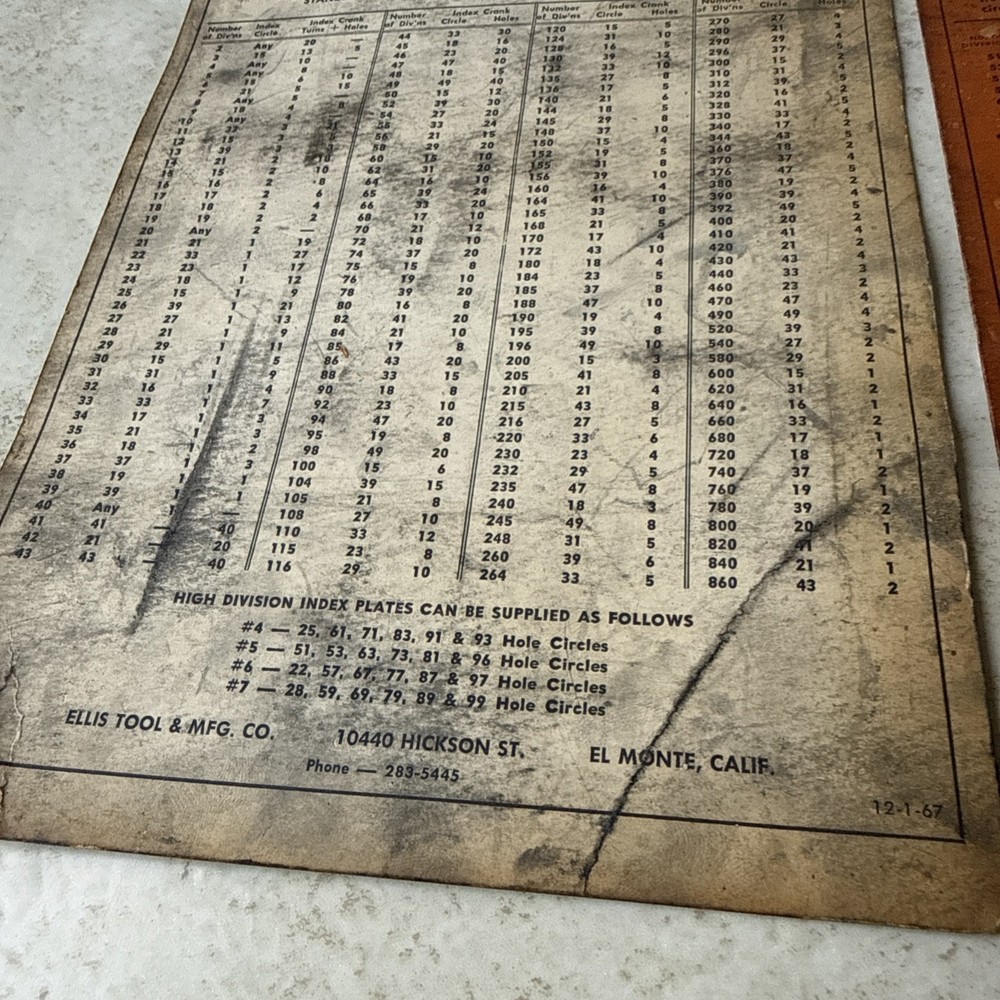 Number of Div'ns Index Circle Index Crank Turns + Holes Number of Div'ns Circle Index Crank Holes Number of Div'ns Circle Index Crank Holes Circle Holes
2 Any 20 — 44 33 30 120 15 5 270 27 4
3 15 13 5 45 18 16 124 31 10 280 21 3
4 Any 10 — 46 23 20 128 16 5 290 29 4
5 Any 8 — 47 47 40 130 39 12 296 37 5
6 15 6 10 48 18 15 132 33 10 300 15 2
7 21 5 15 49 49 40 135 27 8 310 31 4
8 Any 5 — 50 15 12 136 17 5 312 39 5
9 18 4 8 52 39 30 140 21 6 320 16 2
10 Any 4 — 54 27 20 144 18 5 328 41 5
11 33 3 21 55 33 24 145 29 8 330 33 4
12 15 3 5 56 21 15 148 37 10 340 17 2
13 39 3 3 58 29 20 150 15 4 344 43 5
14 21 2 18 60 15 10 152 19 5 360 18 2
15 15 2 10 62 31 20 155 31 8 370 37 4
16 16 2 8 64 16 10 156 39 10 376 47 5
17 17 2 6 65 39 24 160 16 4 380 19 2
18 18 2 4 66 33 20 164 41 10 390 39 4
19 19 2 2 68 17 10 165 33 8 392 49 5
20 Any 2 — 70 21 12 168 21 5 400 20 2
21 21 1 19 72 18 10 170 17 4 410 41 4
22 33 1 27 74 37 20 172 43 10 420 21 2
23 23 1 17 75 15 8 180 18 4 430 43 4
24 18 1 12 76 19 10 184 23 5 440 33 3
25 15 1 9 78 39 20 185 37 8 460 23 2
26 39 1 21 80 16 8 188 47 10 470 47 4
27 27 1 13 82 41 20 190 19 4 490 49 4
28 21 1 9 84 21 10 195 39 8 520 39 3
29 29 1 11 85 17 8 196 49 10 540 27 2
30 15 1 5 86 43 20 200 15 3 580 29 2
31 31 1 9 88 33 15 205 41 8 600 15 1
32 16 1 4 90 18 8 210 21 4 620 31 2
33 33 1 7 92 23 10 215 43 8 640 16 1
34 17 1 3 94 47 20 216 27 5 660 33 2
35 21 1 3 95 19 8 220 33 6 680 17 1
36 18 1 2 98 49 20 230 23 4 720 18 1
37 37 1 3 100 15 6 232 29 5 740 37 2
38 19 1 1 104 39 15 235 47 8 760 19 1
39 39 1 1 105 21 8 240 18 3 780 39 2
40 Any 1 — 108 27 10 245 49 8 800 20 1
41 41 — 40 110 33 12 248 31 5 820 41 2
42 21 — 20 115 23 8 260 39 6 840 21 1
43 43 — 40 116 29 10 264 33 5 860 43 2
HIGH DIVISION INDEX PLATES CAN BE SUPPLIED AS FOLLOWS
#4 — 25, 61, 71, 83, 91 & 93 Hole Circles
#5 — 51, 53, 63, 73, 81 & 96 Hole Circles
#6 — 22, 57, 67, 77, 87 & 97 Hole Circles
#7 — 28, 59, 69, 79, 89 & 99 Hole Circles
ELLIS TOOL & MFG. CO. 10440 HICKSON ST. EL MONTE, CALIF.
Phone — 283-5445
12-1-67